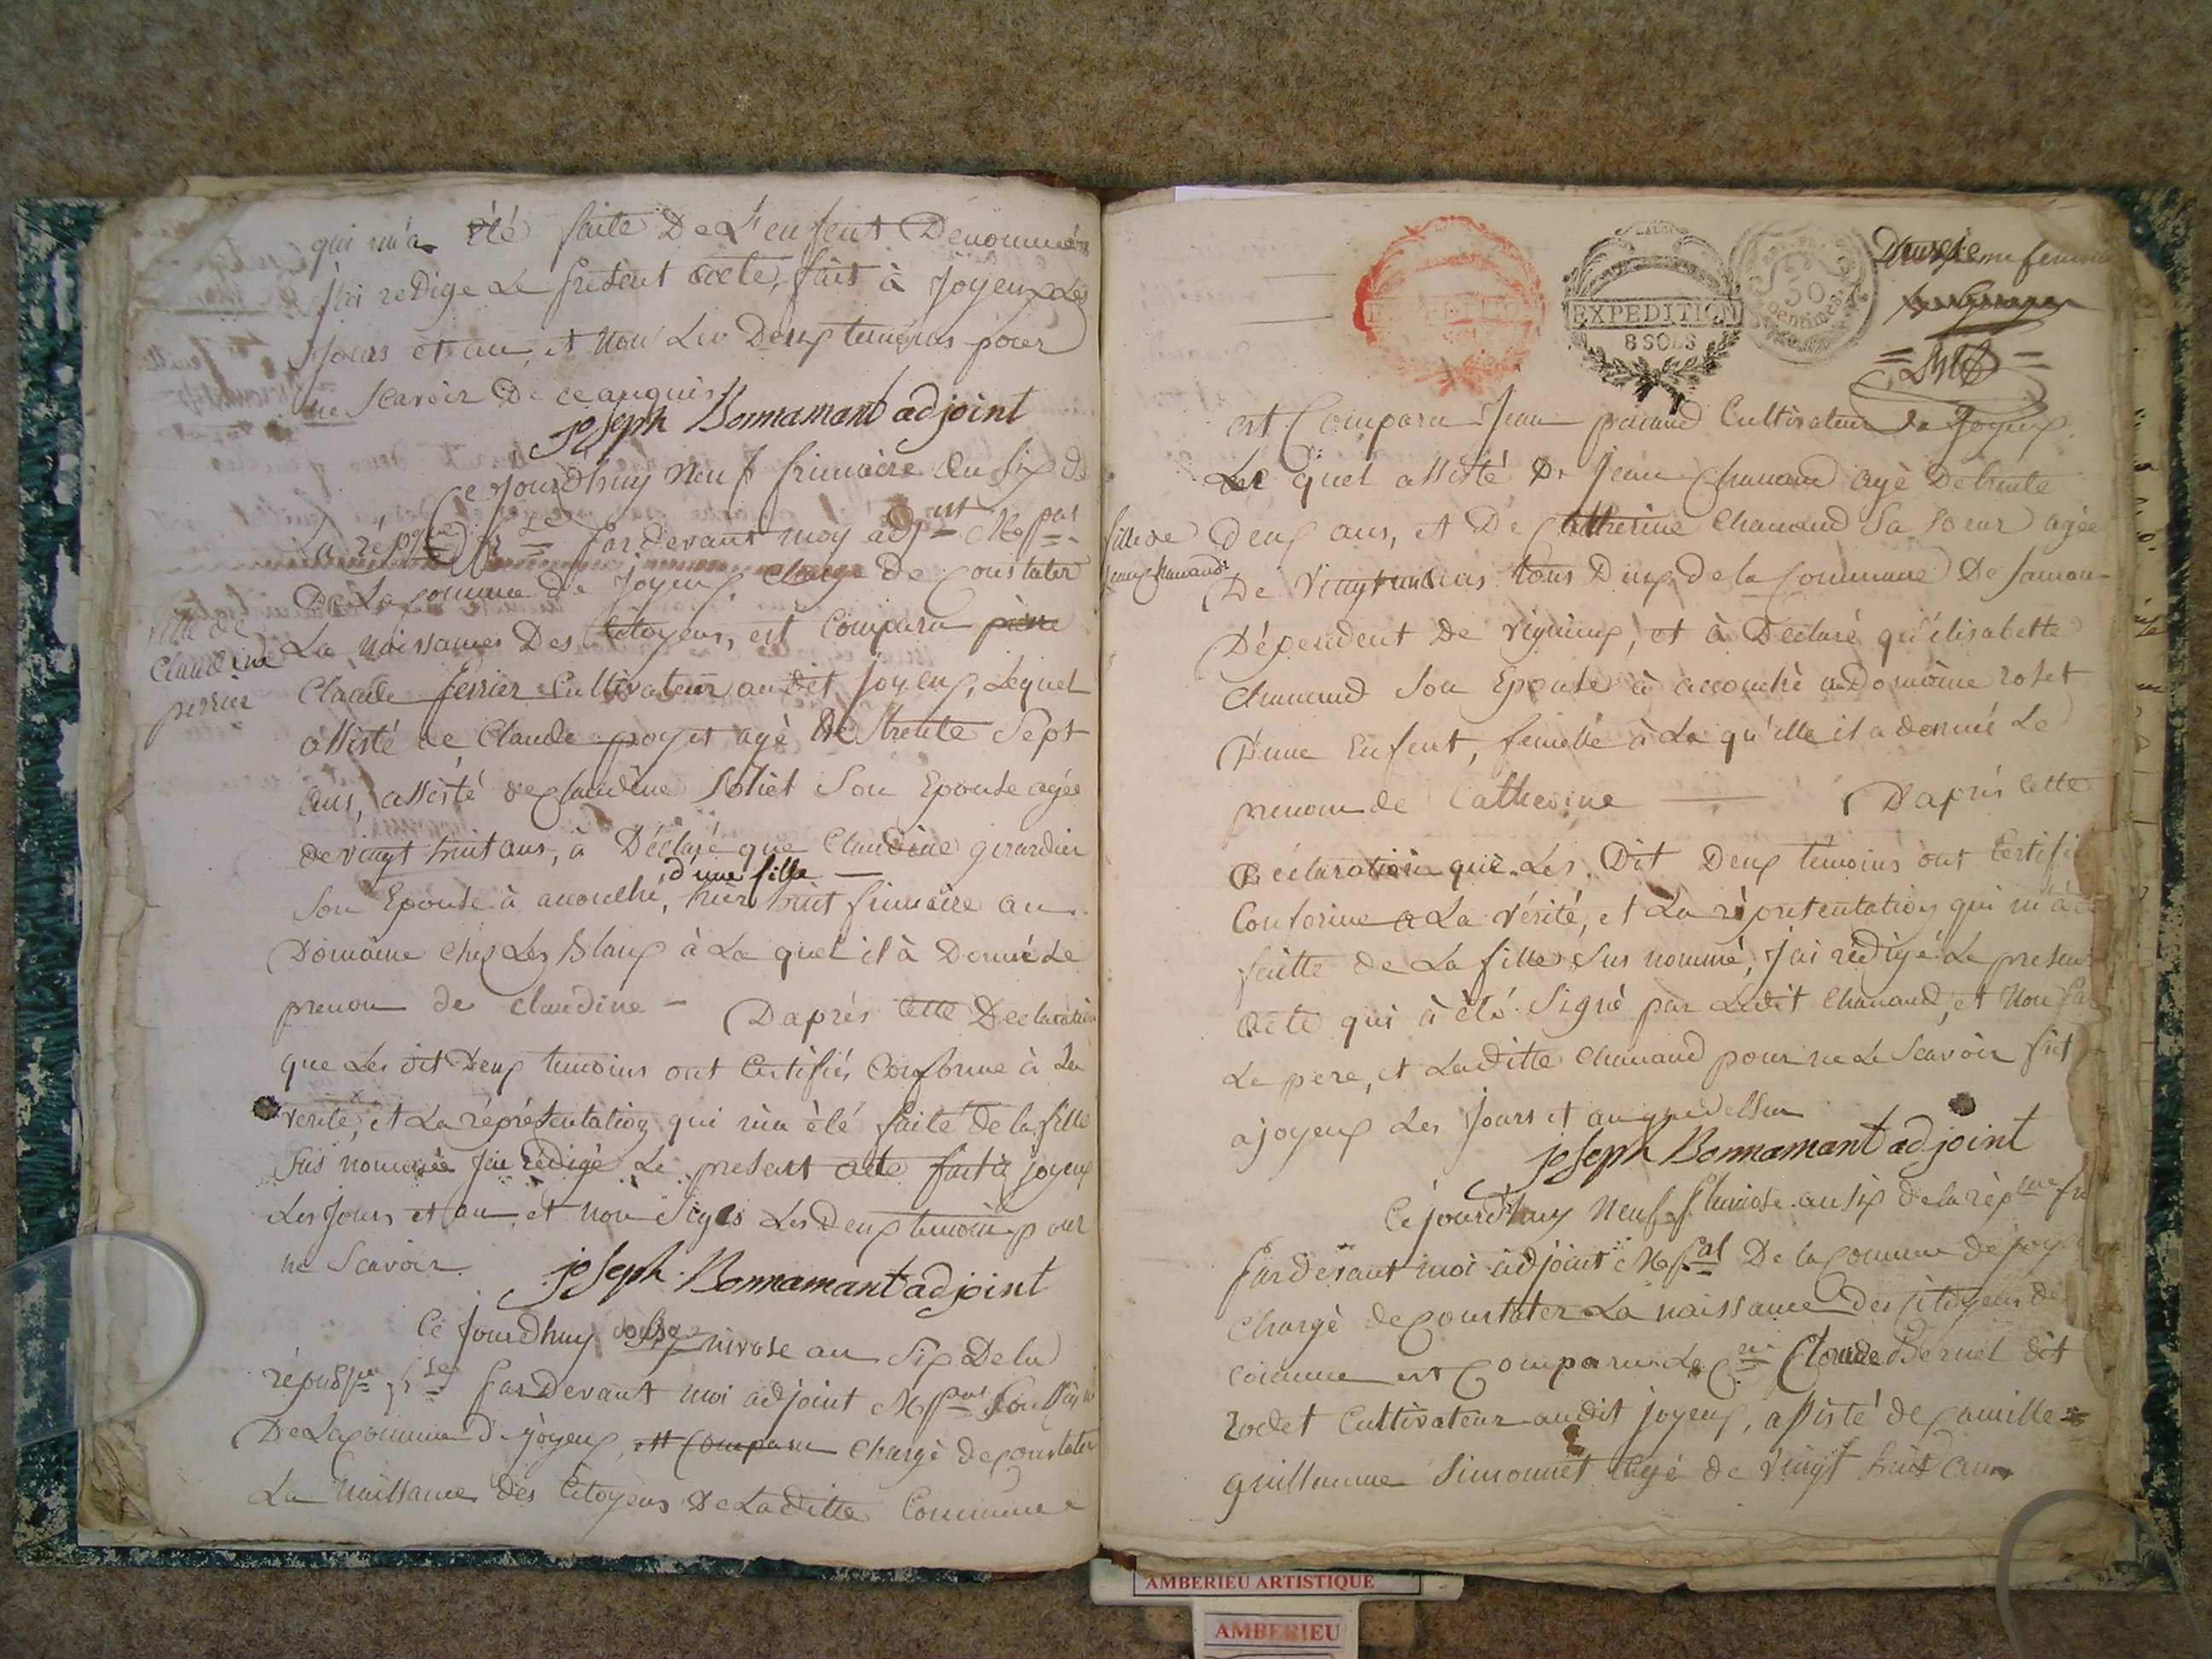 qui m'a été faite De L'enfent Denommée
j'ai redige Le present acte, fait à Joyeux Les
Jours et an, et non Les Deux temoins pour
ne Scavoir De ce anquis
joseph Bonnamant adjoint
Ce Jourdhuy Neuf frimaire an Six de
la rép.que fr.se pardevant moy adj.nt M.pal
De La Commune De Joyeux, chargé De Constater
fille de
Claudine
perrier
La Naissances Des Citoyens, est Comparu pierre
Claude perrier Cultivateur audit Joyeux, Lequel
assisté de Claude poyet agé de trente Sept
ans, assisté de claudine Soliet Son Epouse agée
de vingt huit ans, à Déclaré que Claudine girardier
d'une fille
Son Epouse à accouché, hier huit frimaire au
Domaine chez Les Blanx à La quel il à Donné Le
prenom de claudine - Daprés Cette Declaration
que Les dit Deux temoins ont Certifiés Conforme à La
verité, et La représentation qui m'a été faite de la fille
Sus nommée j'ai rédigé Le present acte fait à joyeux
Les Jours et an, et non Signés Les Deux temoins pour
ne Scavoir.
joseph Bonnamant adjoint
Ce Jourdhuy nivose an Six De la
répub.que fr.se pardevant moi adjoint M.pal
De La Commune De joyeux, est Comparu chargé de Constater
La Naissance des Citoyens De La ditte Commune
EXPEDITION
8 SOLS
50
centimes
Deuxieme
est Comparu Jean Cultivateur de Joyeux
Le quel assisté De Jean Chanand agé De trente
fille de
jean chanand
deux ans, et De Catherine Chanand Sa Soeur agée
De tous Deux de la Commune De
Dépendent De et à Declaré qu'élisabette
chanand Son Epouse à accouché au Domaine rolet
D'une Enfent, femelle à La qu'elle il a donné Le
prenom de Catherine — Daprés Cette
Déclaration que Les Dit Deux témoins ont Certifié
Conforme a La vérité, et La représentation qui m'a été
faitte de La fille Sus nommé, j'ai rédigé Le present
acte qui à été Signé par Ledit Chanand, et Non
Le pere, et Laditte Chanand pour ne Le Scavoir fait
a joyeux Les Jours et an que dessus
joseph Bonnamant adjoint
Ce jourdhuy Neuf pluviose an Six de la rép.que fr
pardevant moi adjoint M.pal De la Commune de joyeux
chargé de Constater La naissance des Citoyens de
Comune est Comparu Le C.en Claude Bernet dit
rodet Cultivateur audit joyeux, assisté de Camille
guillaume Simonnet agé de vingt huit ans
AMBERIEU ARTISTIQUE
AMBERIEU